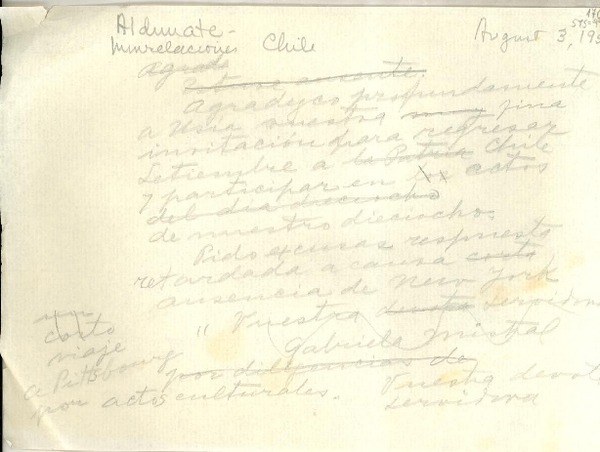 Aldunate -
Minrelaciones Chile
August 3, 195
Agrado
Agradezco profundamente
a Usía vuestra muy fina
invitación para regresar
Setiembre a la Patria Chile
y participar en actos
del día dieciocho
de nuestro dieciocho.
Pido excusas respuesta
retardada a causa corto
ausencia de New York
" Vuestra devota servidora
Gabriela Mistral
un
corto
viaje
a Pittsbourg por diligencias de
por actos culturales. Vuestra devota
servidora